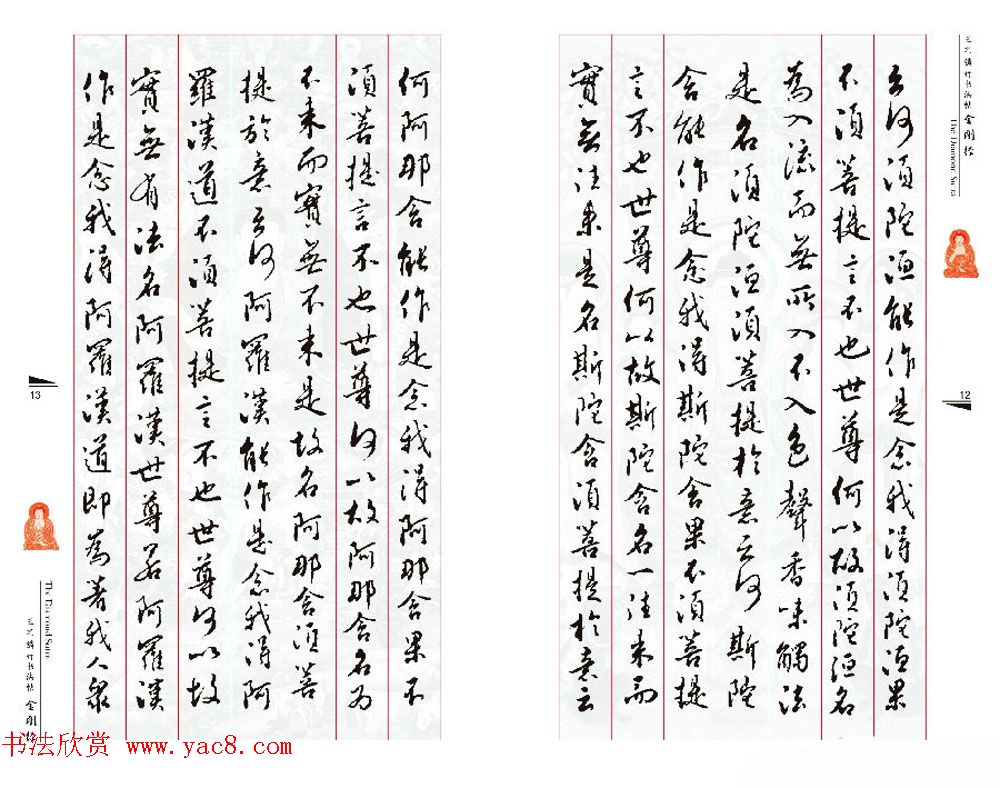 云何須陀洹能作是念我得須陀洹果
不須菩提言不也世尊何以故須陀洹名
為入流而無所入不入色聲香味觸法
是名須陀洹須菩提於意云何斯陀
含能作是念我得斯陀含果不須菩提
言不也世尊何以故斯陀含名一往来而
實無往来是名斯陀含須菩提於意云
何阿那含能作是念我得阿那含果不
須菩提言不也世尊何以故阿那含名為
不来而實無不来是故名阿那含須菩
提於意云何阿羅漢能作是念我得阿
羅漢道不須菩提言不也世尊何以故
實無有法名阿羅漢世尊若阿羅漢
作是念我得阿羅漢道即為著我人眾
金剛經
The Diamond Sutra
12
13
The Diamond Sutra
金剛經
书法欣赏 www.yac8.com